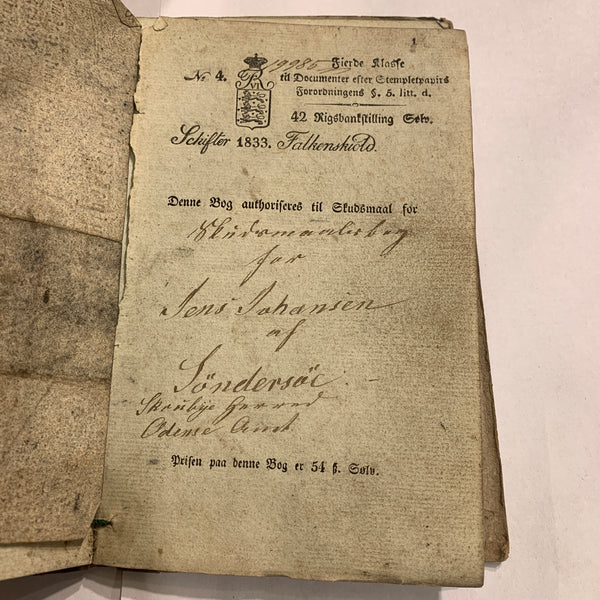 1
No. 4. 19985 Fierde Klasse
til Documenter efter Stempletpapirs
Forordningens §. 5. litt. d.
42 Rigsbankskilling Sølv.
Schifter 1833. Falkenskiold.
Denne Bog authoriseres til Skudsmaal for
Skudsmaalsbog
for
Jens Johansen
af
Søndersøe
Skoubye Herred
Odense Amt
Prisen paa denne Bog er 54 ß. Sølv.